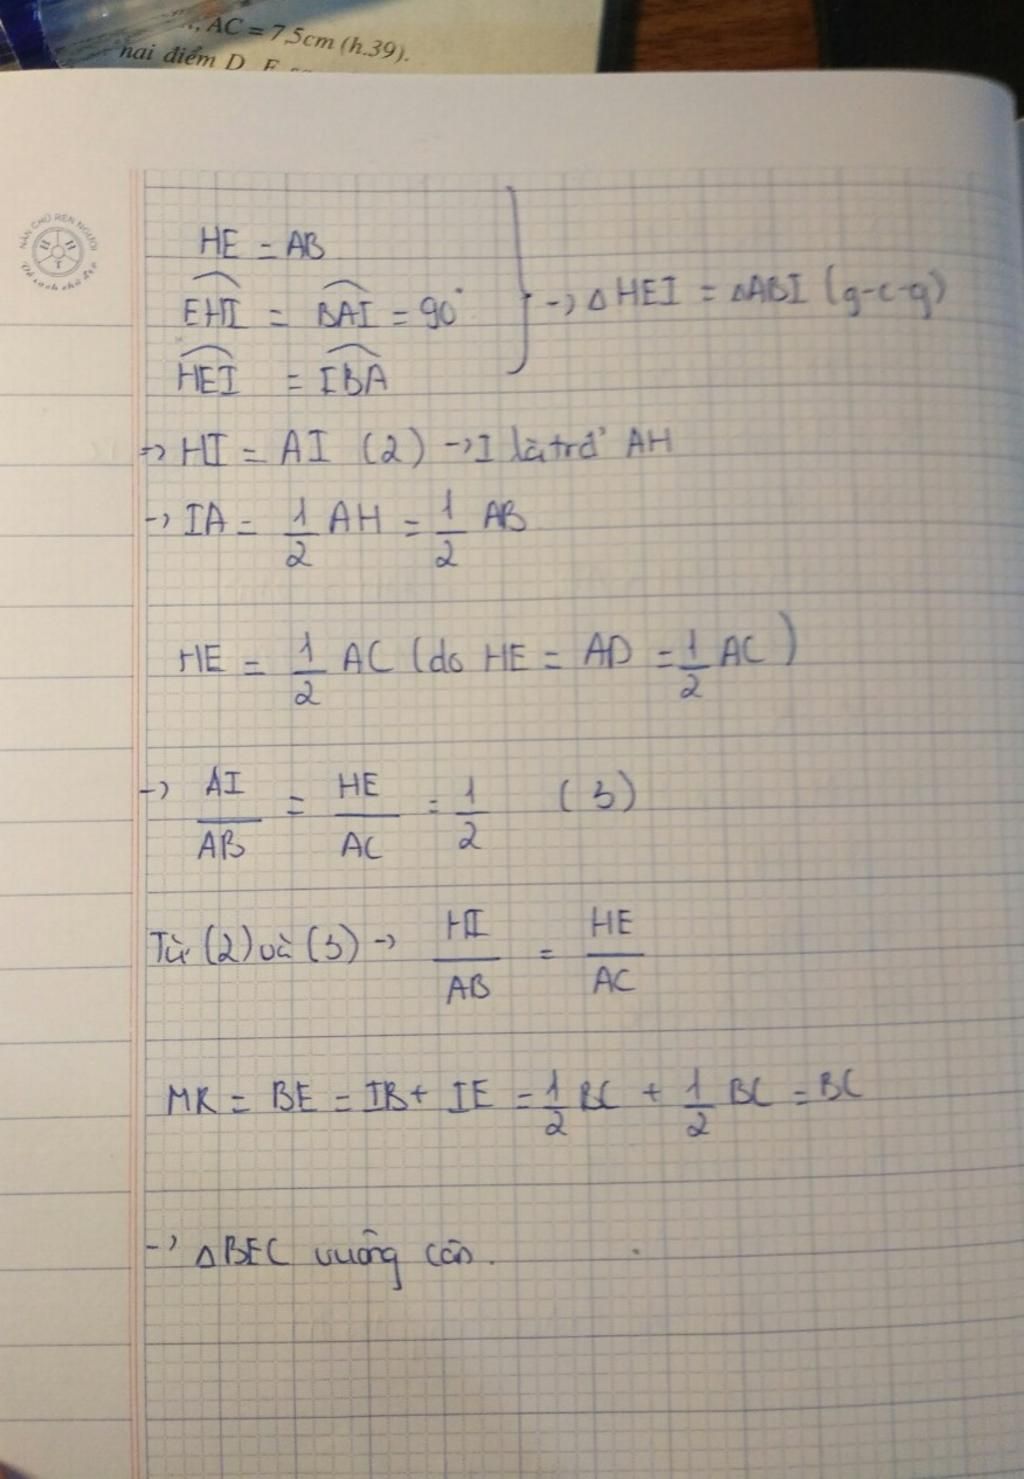 AC = 7,5cm (h.39).
hai điểm D, E
NẮN CHỮ RÈN NGƯỜI
HE = AB
EHI = BAI = 90° -> ΔHEI = ΔABI (g-c-g)
HEI = IBA
=> HI = AI (2) -> I là trđ' AH
-> IA = 1/2 AH = 1/2 AB
HE = 1/2 AC (do HE = AD = 1/2 AC)
-> AI/AB = HE/AC = 1/2 (3)
Từ (2) và (3) -> HI/AB = HE/AC
MK = BE = IB + IE = 1/2 BC + 1/2 BC = BC
-> ΔBEC vuông cân.